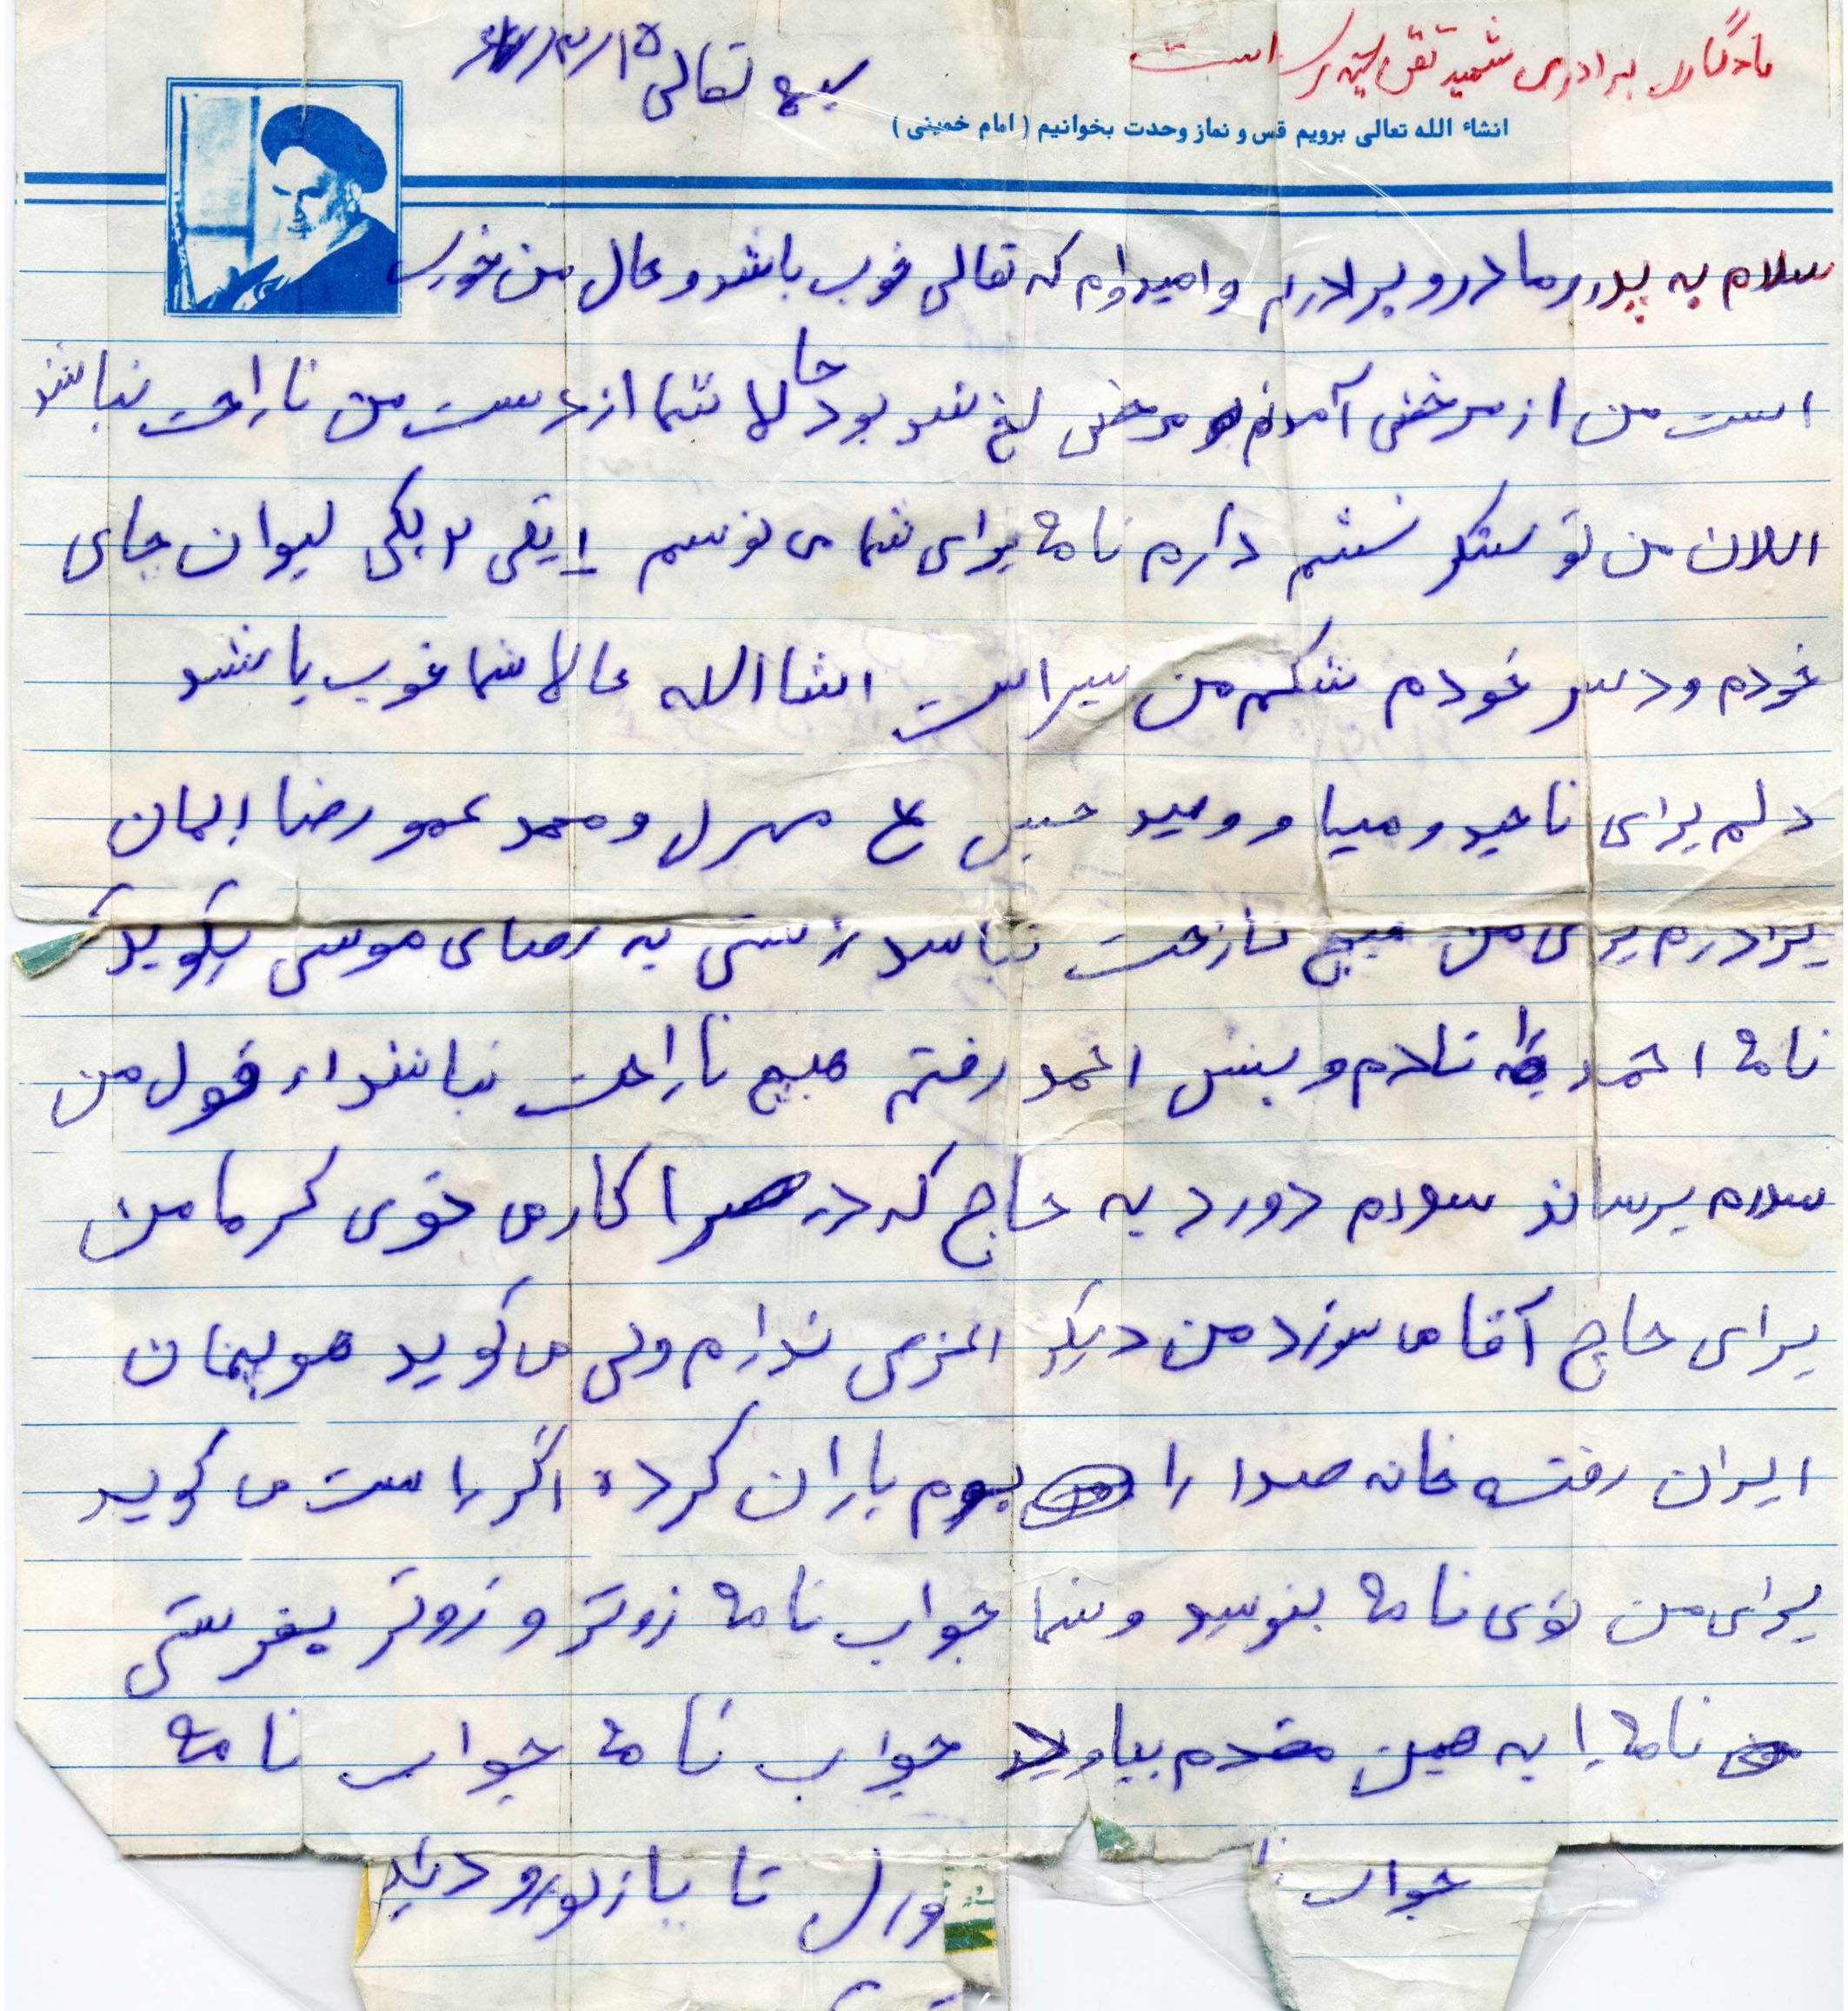 یادگار برادرم شهید تقی است
بسمه تعالی ۱۵/۳/
انشاء الله تعالی برویم قدس و نماز وحدت بخوانیم ( امام خمینی )
سلام به پدر و مادر و برادرم و امیدوام که تعالی خوب باشد و حال من خوب
است من از مرخصی آمدم مرخصی لغ شد بود حالا شما از دست من ناراحت نباشد
اللان من تو سنگر نشتم دارم نامه برای شما می نوسم لیوان چای
خودم و دسر خودم شکم من سیر است انشاالله حالا شما خوب باشد
دلم برای ناهید و مینا و وحید و محمد عمو رضا ایمان
برادرم برای من هیچ نارحت نباسد راستی به رضای موسی بگوید
نامه احمد را نادم و بیش احمد رفتم هیچ ناراحت نباشد از قول من
سلام برساند سلام دورد به حاج که در صحرا کار می توی گرما من
برای حاج آقا می سوزد من دیگر ندارم ولی می گوید
ایران رفته خانه صدا را بوم باران کرده اگر راست می گوید
برای من توی نامه بنوسید و شما جواب نامه زوتر و زوتر بفرستی
نامه را به همین مقدم بیاورید جواب نامه جواب نامه
جواب تا